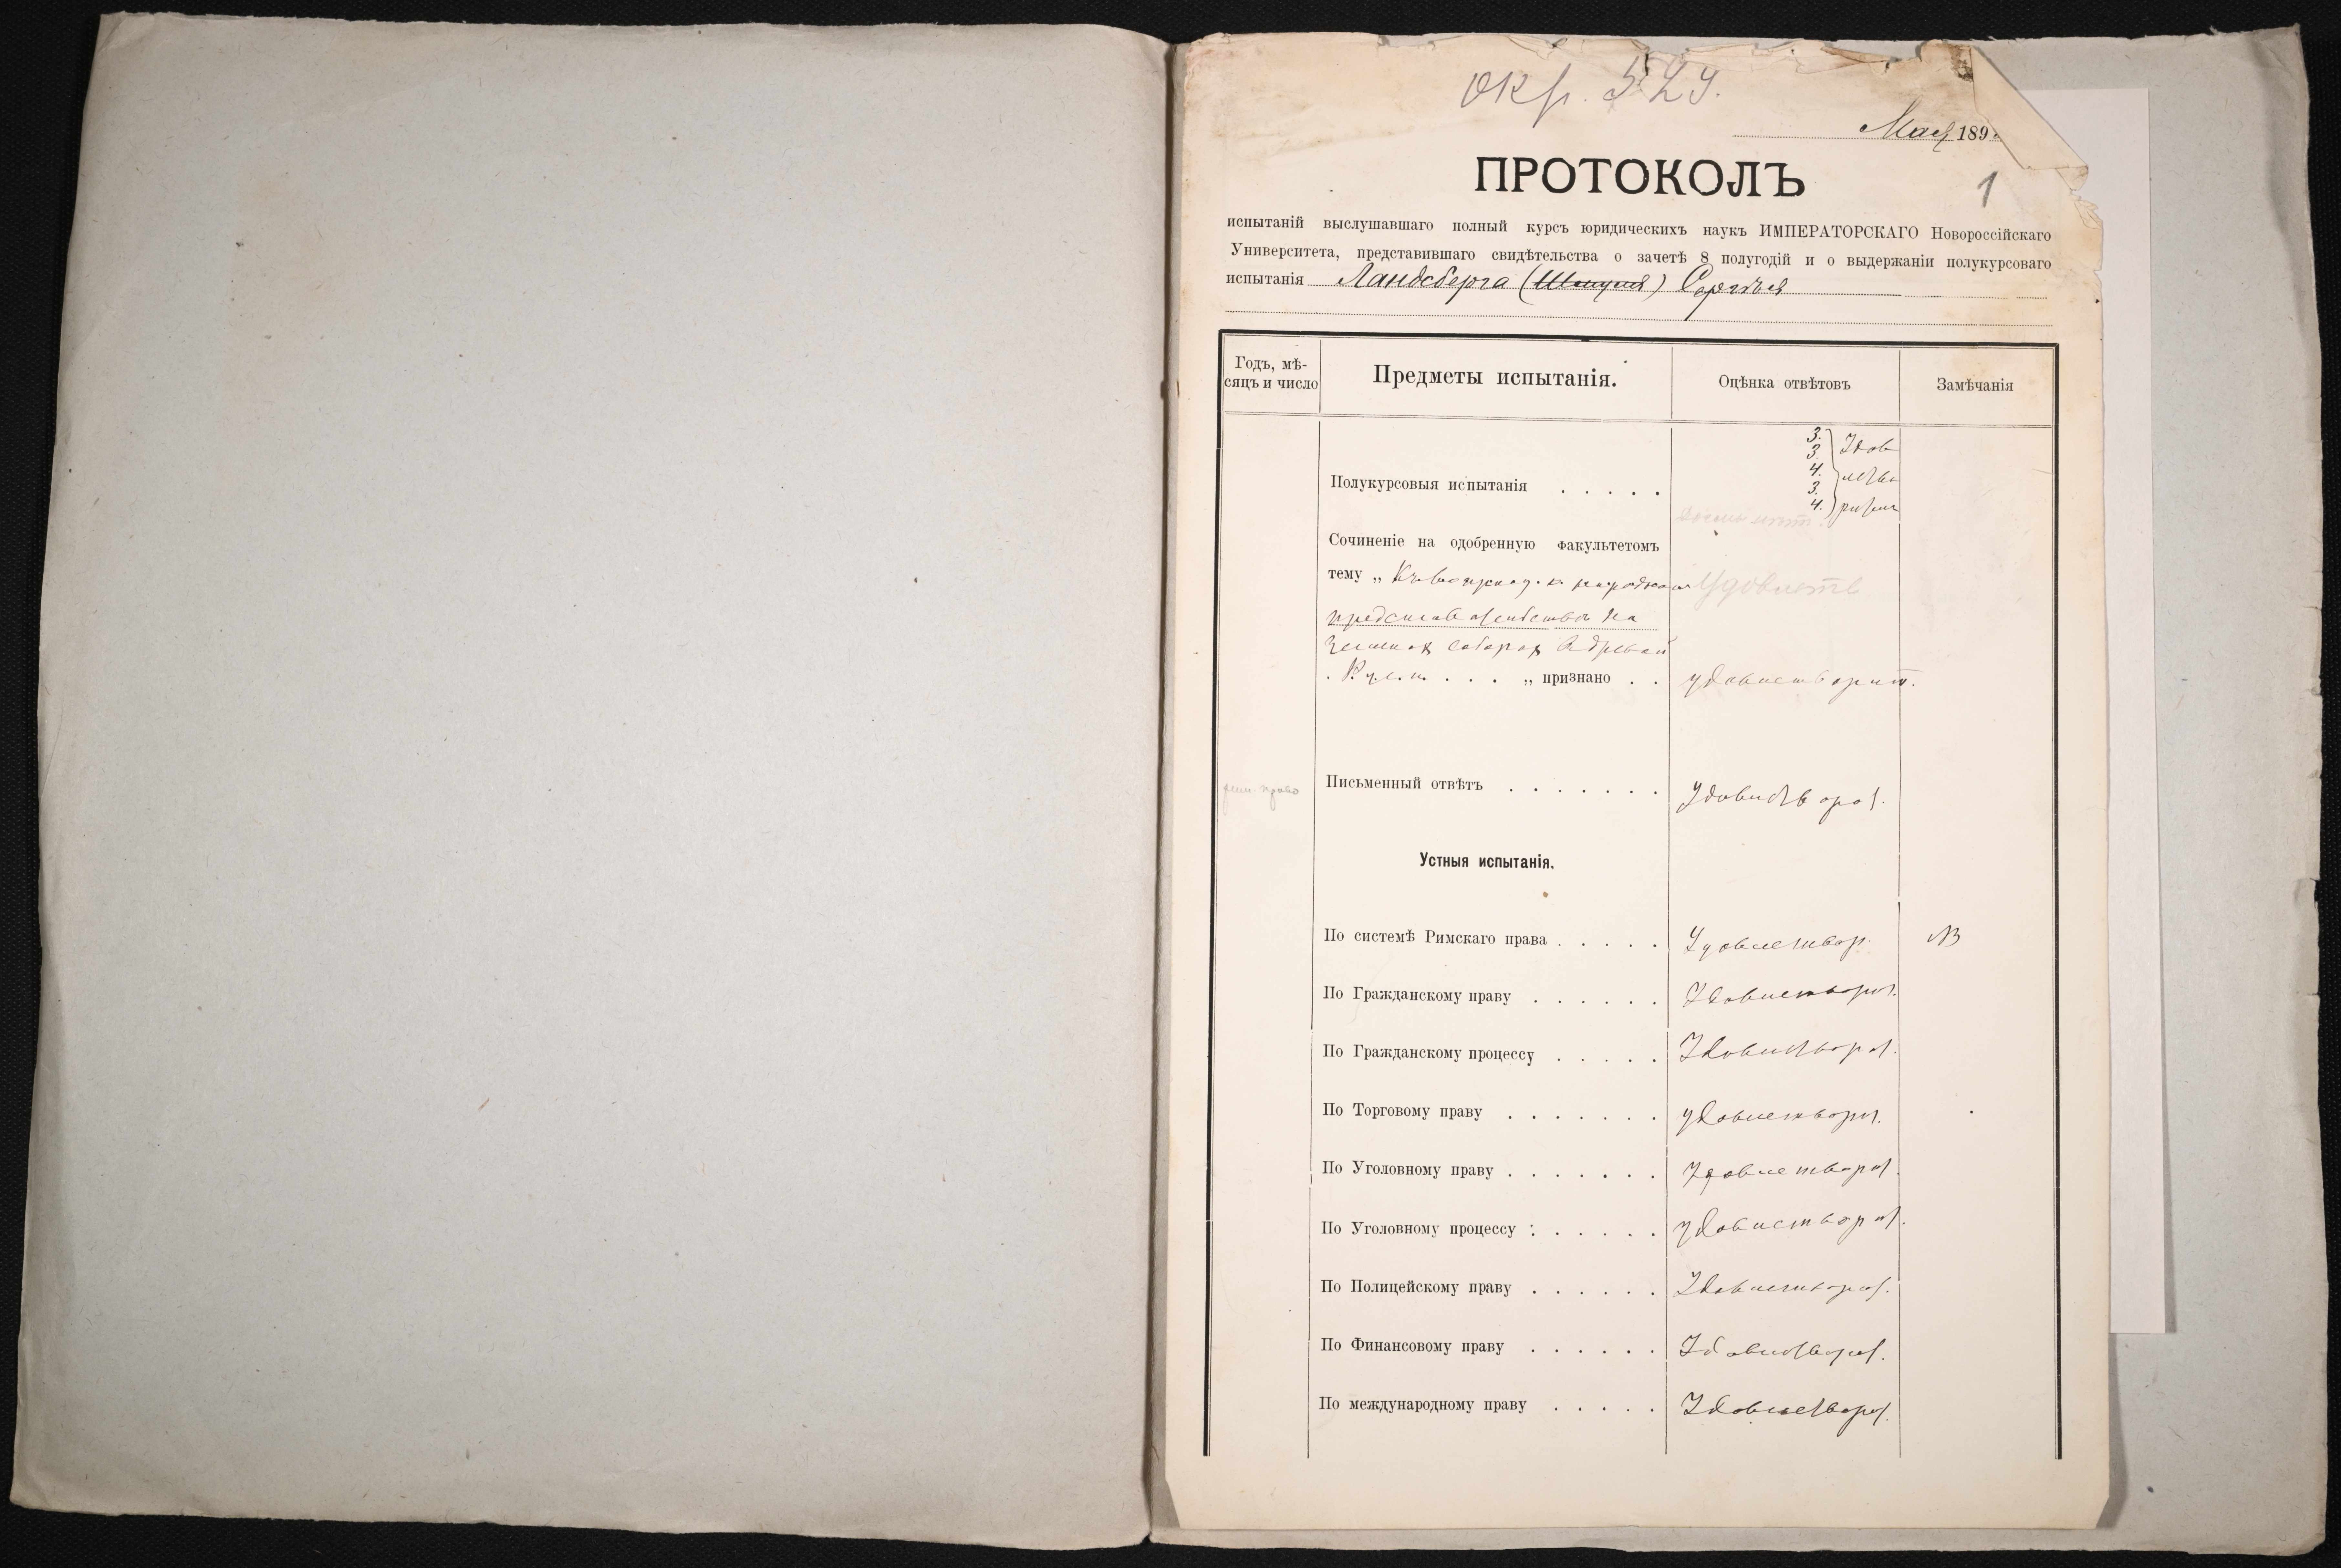 окр. 529.
Мая 189
ПРОТОКОЛЪ
1
испытаній выслушавшаго полный курсъ юридическихъ наукъ ИМПЕРАТОРСКАГО Новороссійскаго
Университета, представившаго свидѣтельства о зачетѣ 8 полугодій и о выдержаніи полукурсоваго
испытанія Ландсберга () Сергѣя
Годъ, мѣ-
сяцъ и число
Предметы испытанія.
Оцѣнка отвѣтовъ
Замѣчанія
3.
3.
4.
3.
4.
Удов
летво
рител
Полукурсовыя испытанія . . . . .
Сочиненіе на одобренную факультетомъ
тему „ Къ вопросу о народномъ
Удовлетв
представительствѣ на
земскихъ соборахъ древней
Руси . . . „ признано . . удовлетворит.
рим. право
Письменный отвѣтъ . . . . . . . Удовлетворит.
Устныя испытанія.
По системѣ Римскаго права . . . . . Удовлетвор. NB
По Гражданскому праву . . . . . . Удовлетворит.
По Гражданскому процессу . . . . . Удовлетворит.
По Торговому праву . . . . . . . удовлетворит.
По Уголовному праву . . . . . . . Удовлетворит.
По Уголовному процессу : . . . . . удовлетворит.
По Полицейскому праву . . . . . . Удовлетворит.
По Финансовому праву . . . . . . Удовлетворит.
По международному праву . . . . . Удовлетворит.